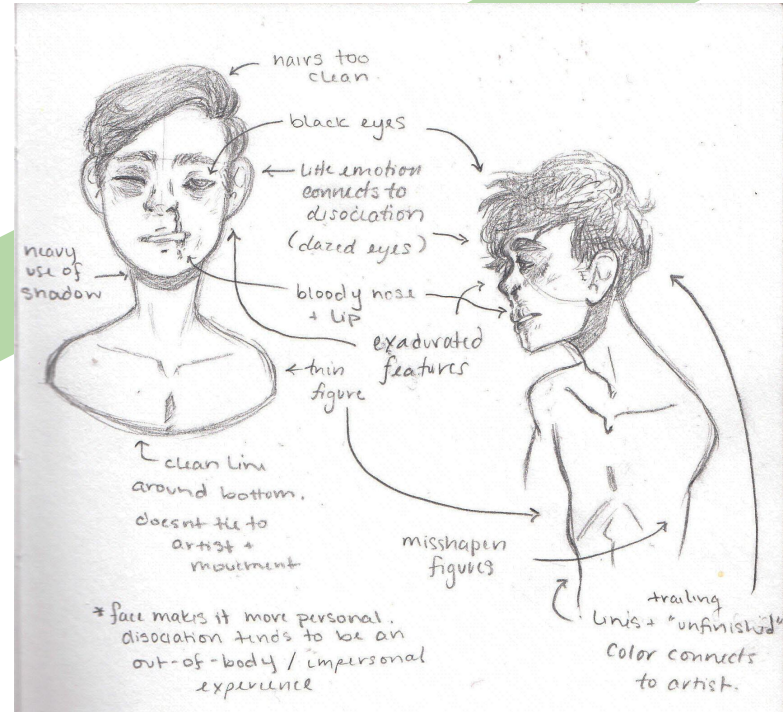 hairs too
clean
black eyes
little emotion
connects to
disociation
(dazed eyes)
heavy
use of
shadow
bloody nose
+ lip
exadurated
features
thin
figure
clean line
around bottom.
doesnt tie to
artist +
movement
misshapen
figures
trailing
lines + "unfinished"
color connects
to artist.
* face makes it more personal.
disociation tends to be an
out-of-body / impersonal
experience